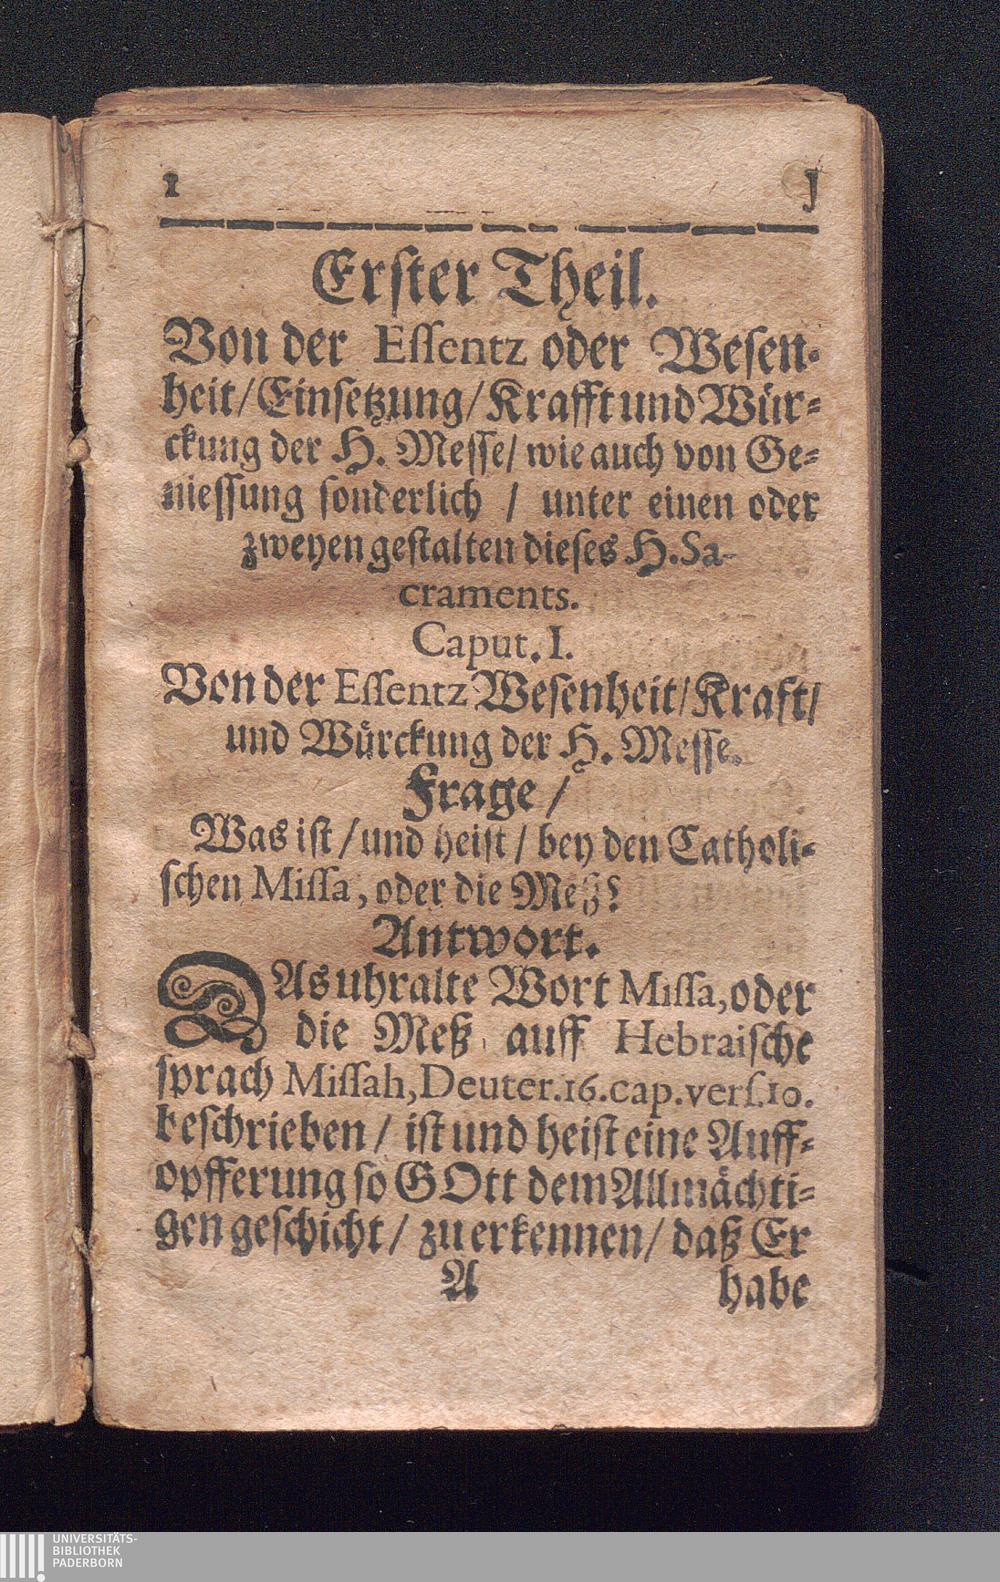 1 J
Erſter Theil.
Von der Eſſentz oder Weſen⸗
heit/Einſetzung/Krafft und Wür⸗
ckung der H. Meſſe/ wie auch von Ge⸗
nieſſung ſonderlich / unter einen oder
zweyen geſtalten dieſes H. Sa-
craments.
Caput. I.
Von der Eſſentz Weſenheit/Kraft/
und Würckung der H. Meſſe.
Frage /
Was iſt / und heiſt / bey den Catholi⸗
ſchen Miſſa, oder die Meß?
Antwort.
DAs uhralte Wort Miſſa, oder
die Meß auff Hebraiſche
ſprach Miſſah, Deuter. 16. cap. verſ. 10.
beſchrieben / iſt und heiſt eine Auff⸗
opfferung ſo GOtt dem Allmächti⸗
gen geſchicht / zu erkennen / daß Er
A habe
UNIVERSITÄTS-
BIBLIOTHEK
PADERBORN